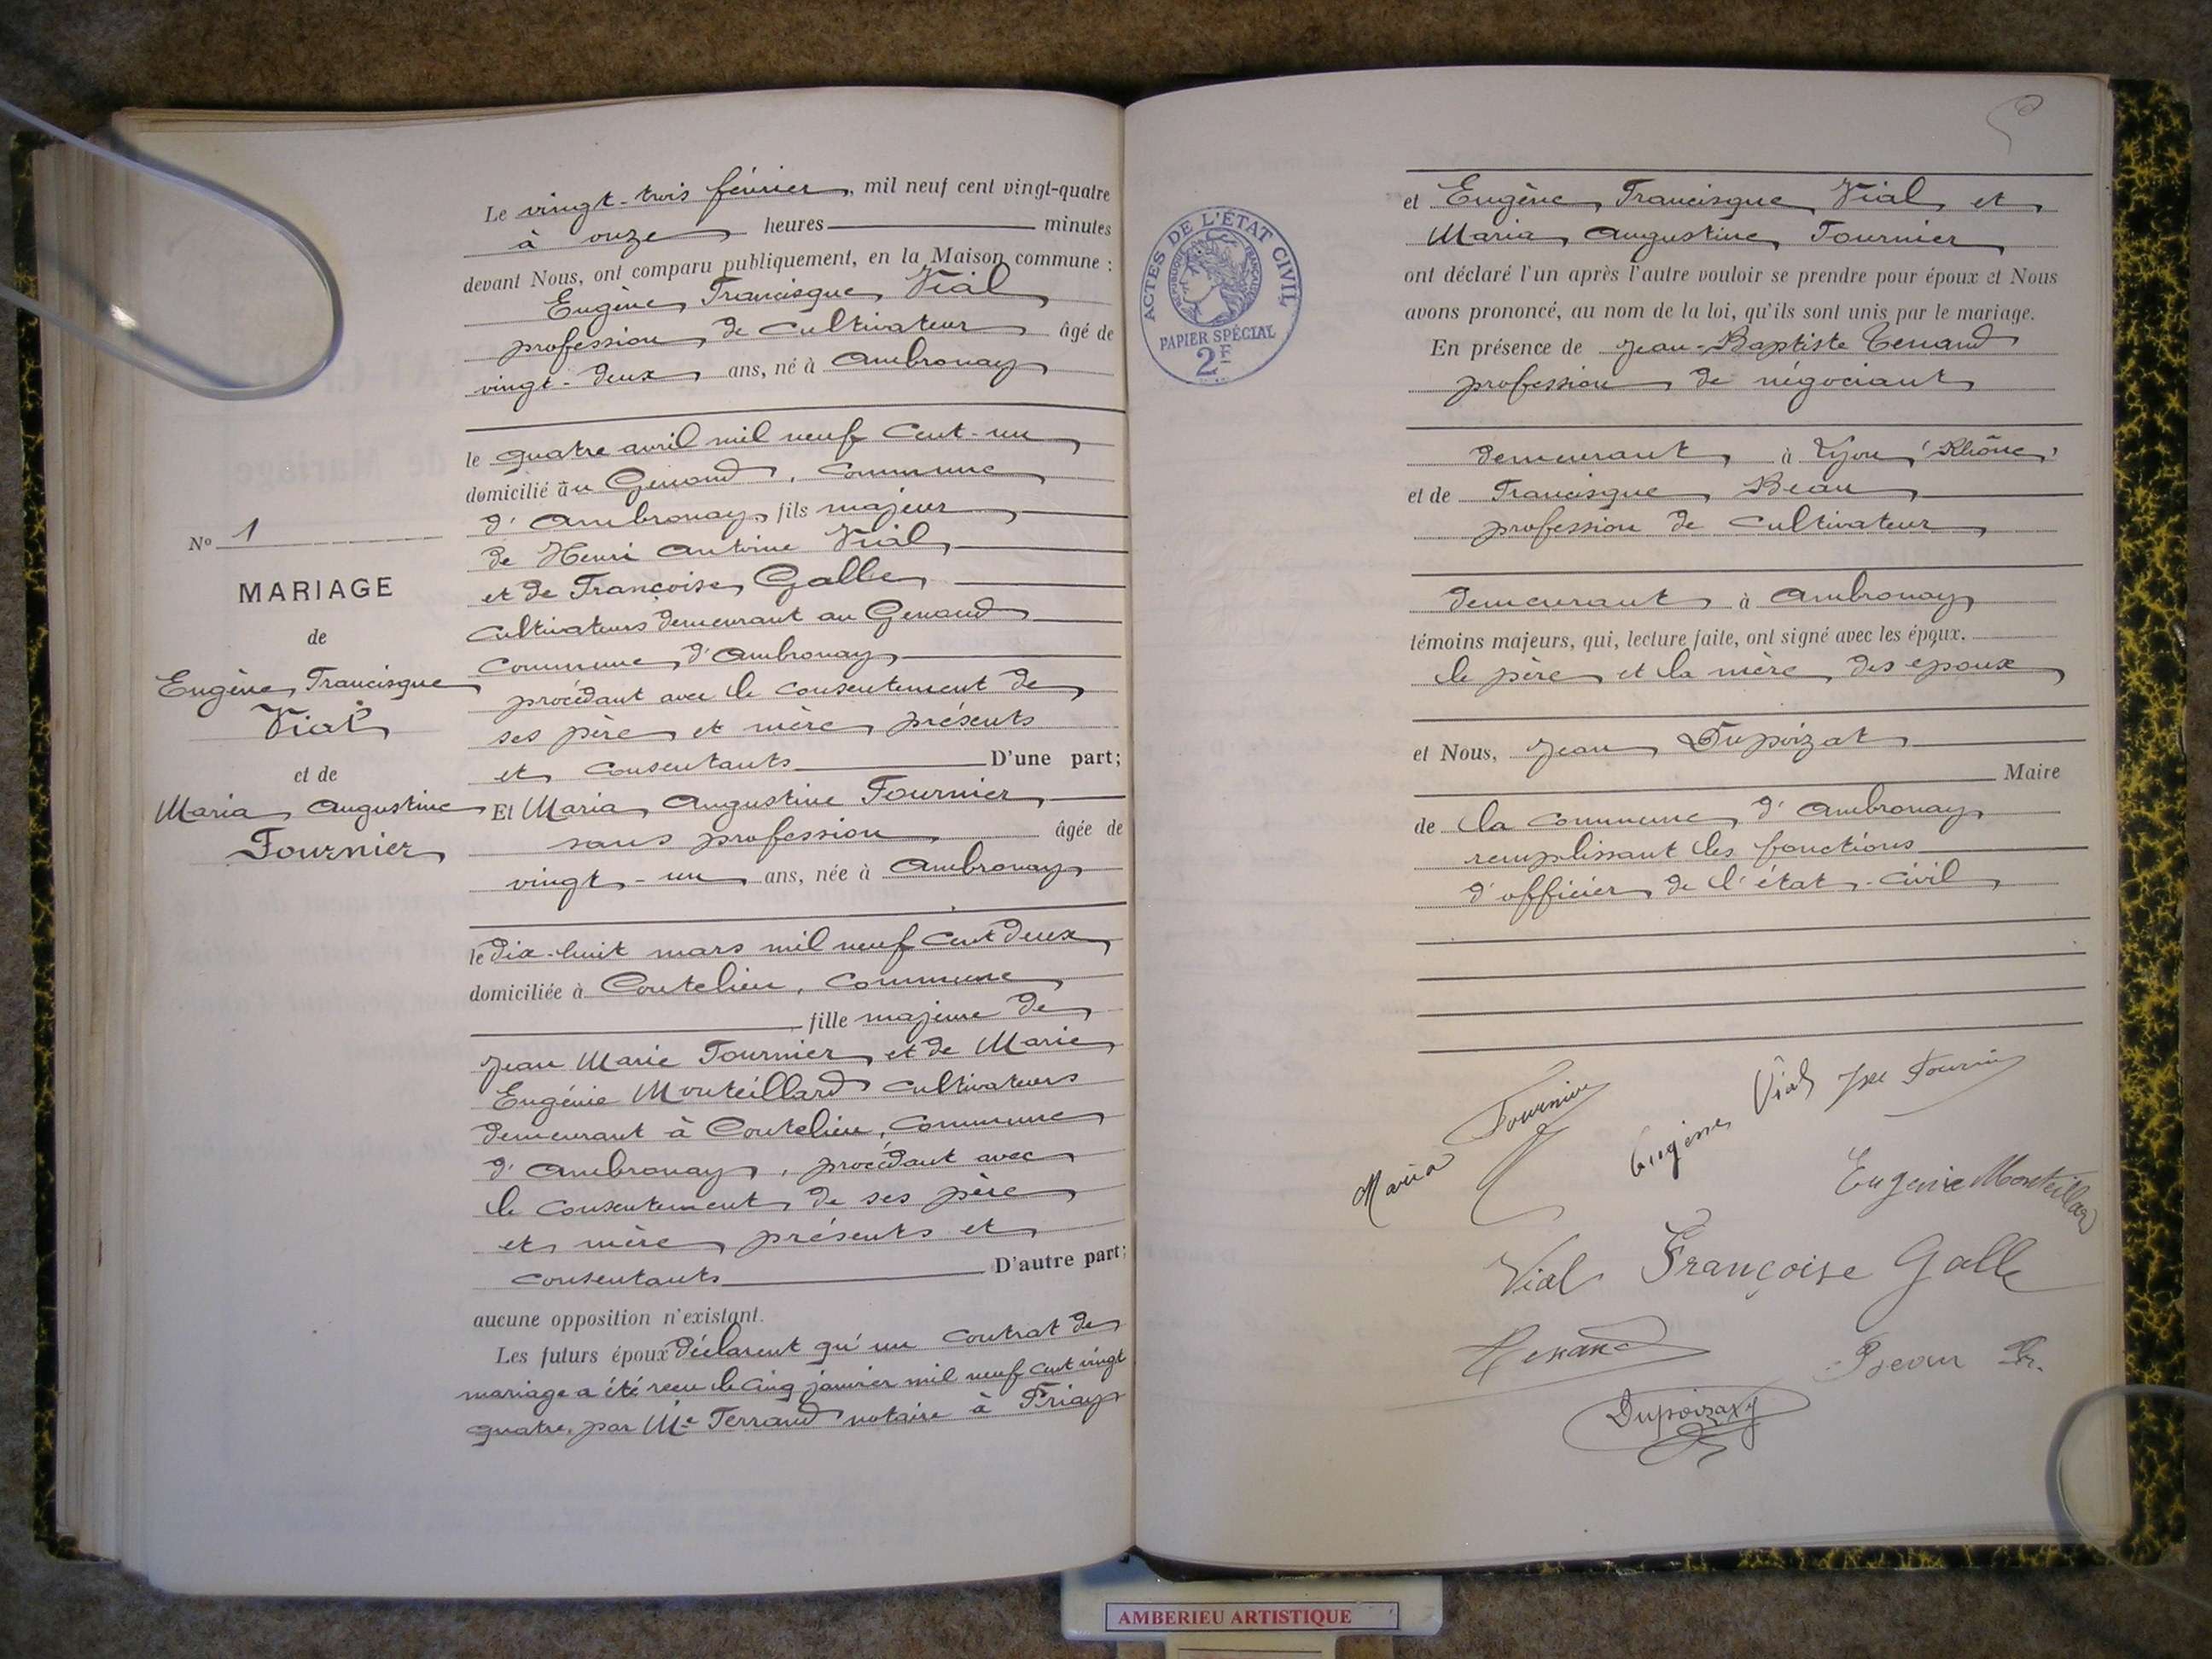 Le vingt-trois février, mil neuf cent vingt-quatre
à onze heures minutes
devant Nous, ont comparu publiquement, en la Maison commune :
Eugène Francisque Vial
profession de cultivateur âgé de
vingt-deux ans, né à Ambronay
le quatre avril mil neuf cent-un
domicilié au Genoud, commune
d'Ambronay, fils majeur
de Henri Antoine Vial
et de Françoise Galle
cultivateurs demeurant au Genoud
commune d'Ambronay
procédant avec le consentement de
ses père et mère présents
et consentants D'une part;
Et Maria Augustine Fournier
sans profession âgée de
vingt-un ans, née à Ambronay
le dix-huit mars mil neuf cent deux
domiciliée à Coutelieu, commune
fille majeure de
Jean Marie Fournier et de Marie
Eugénie Monteillard cultivateurs
demeurant à Coutelieu, commune
d'Ambronay, procédant avec
le consentement de ses père
et mère présents et
consentants D'autre part;
aucune opposition n'existant.
Les futurs époux déclarent qu'un contrat de
mariage a été reçu le cinq janvier mil neuf cent vingt
quatre, par Me Ferrand notaire à Priay
No 1
MARIAGE
de
Eugène Francisque
Vial
et de
Maria Augustine
Fournier
ACTES DE L'ÉTAT CIVIL
RÉPUBLIQUE FRANÇAISE
PAPIER SPÉCIAL
2F
et Eugène Francisque Vial et
Maria Augustine Fournier
ont déclaré l'un après l'autre vouloir se prendre pour époux et Nous
avons prononcé, au nom de la loi, qu'ils sont unis par le mariage.
En présence de Jean-Baptiste Tenand
profession de négociant
demeurant à Lyon (Rhône)
et de Francisque Beau
profession de cultivateur
demeurant à Ambronay
témoins majeurs, qui, lecture faite, ont signé avec les époux.
le père et la mère des époux
et Nous, Jean Dupoizat
Maire
de la commune d'Ambronay
remplissant les fonctions
d'officier de l'état-civil
Maria Fournier
Eugène Vial
Fournier
Eugénie Monteillard
Vial Françoise Galle
Tenand
Beau Fr.
Dupoizat
AMBERIEU ARTISTIQUE